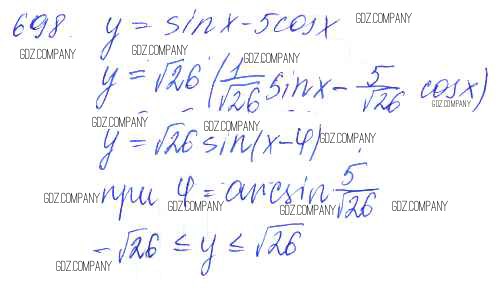 698. y = sinx - 5cosx GDZ.COMPANY
GDZ.COMPANY GDZ.COMPANY GDZ.COMPANY
y = √26 (1/√26 sinx - 5/√26 cosx)
GDZ.COMPANY
GDZ.COMPANY GDZ.COMPANY
y = √26 sin(x-φ) GDZ.COMPANY
GDZ.COMPANY при φ = arcsin 5/√26
GDZ.COMPANY GDZ.COMPANY GDZ.COMPANY
-√26 ≤ y ≤ √26
GDZ.COMPANY